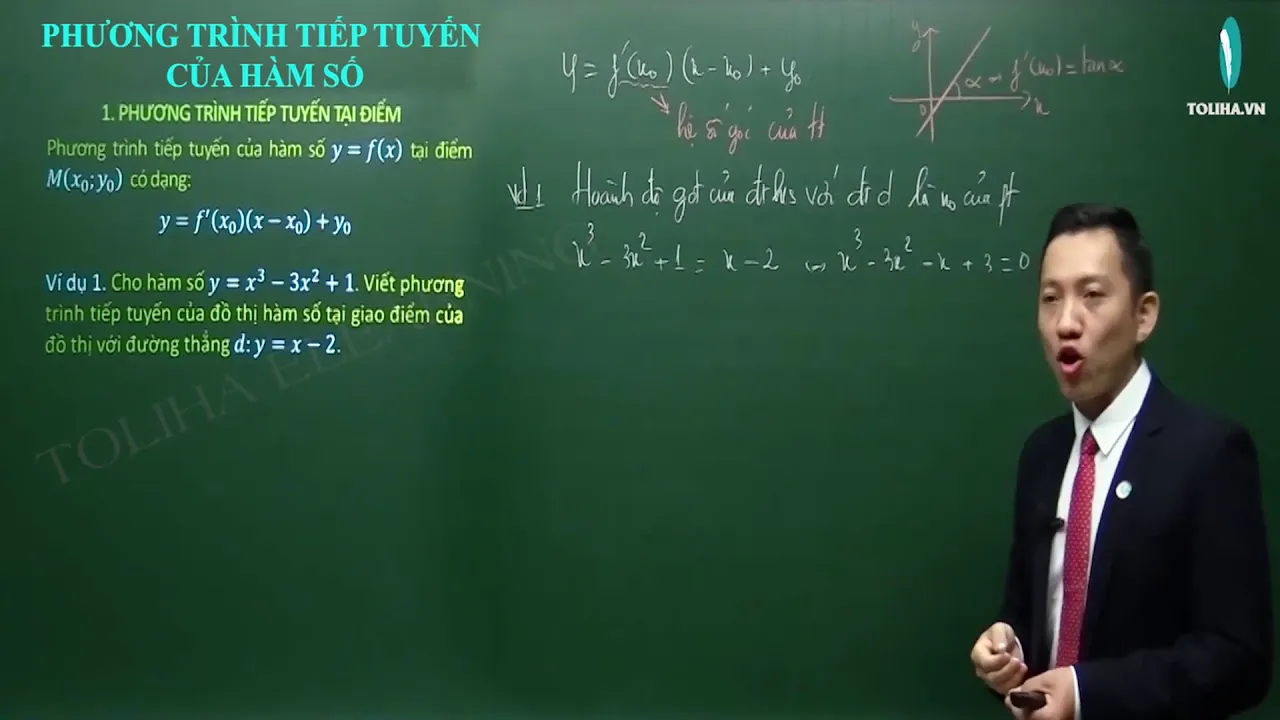 PHƯƠNG TRÌNH TIẾP TUYẾN
CỦA HÀM SỐ
1. PHƯƠNG TRÌNH TIẾP TUYẾN TẠI ĐIỂM
Phương trình tiếp tuyến của hàm số y = f(x) tại điểm
M(x₀; y₀) có dạng:
y = f′(x₀)(x − x₀) + y₀
Ví dụ 1. Cho hàm số y = x³ − 3x² + 1. Viết phương
trình tiếp tuyến của đồ thị hàm số tại giao điểm của
đồ thị với đường thẳng d: y = x − 2.
y = f'(x₀) (x − x₀) + y₀
hệ số góc của tt
y
α → f'(x₀) = tan α
0
x
Vd 1 Hoành độ gđ của đths với đt d là no của pt
x³ − 3x² + 1 = x − 2 ⇔ x³ − 3x² − x + 3 = 0
TOLIHA.VN
TOLIHA ELEARNING